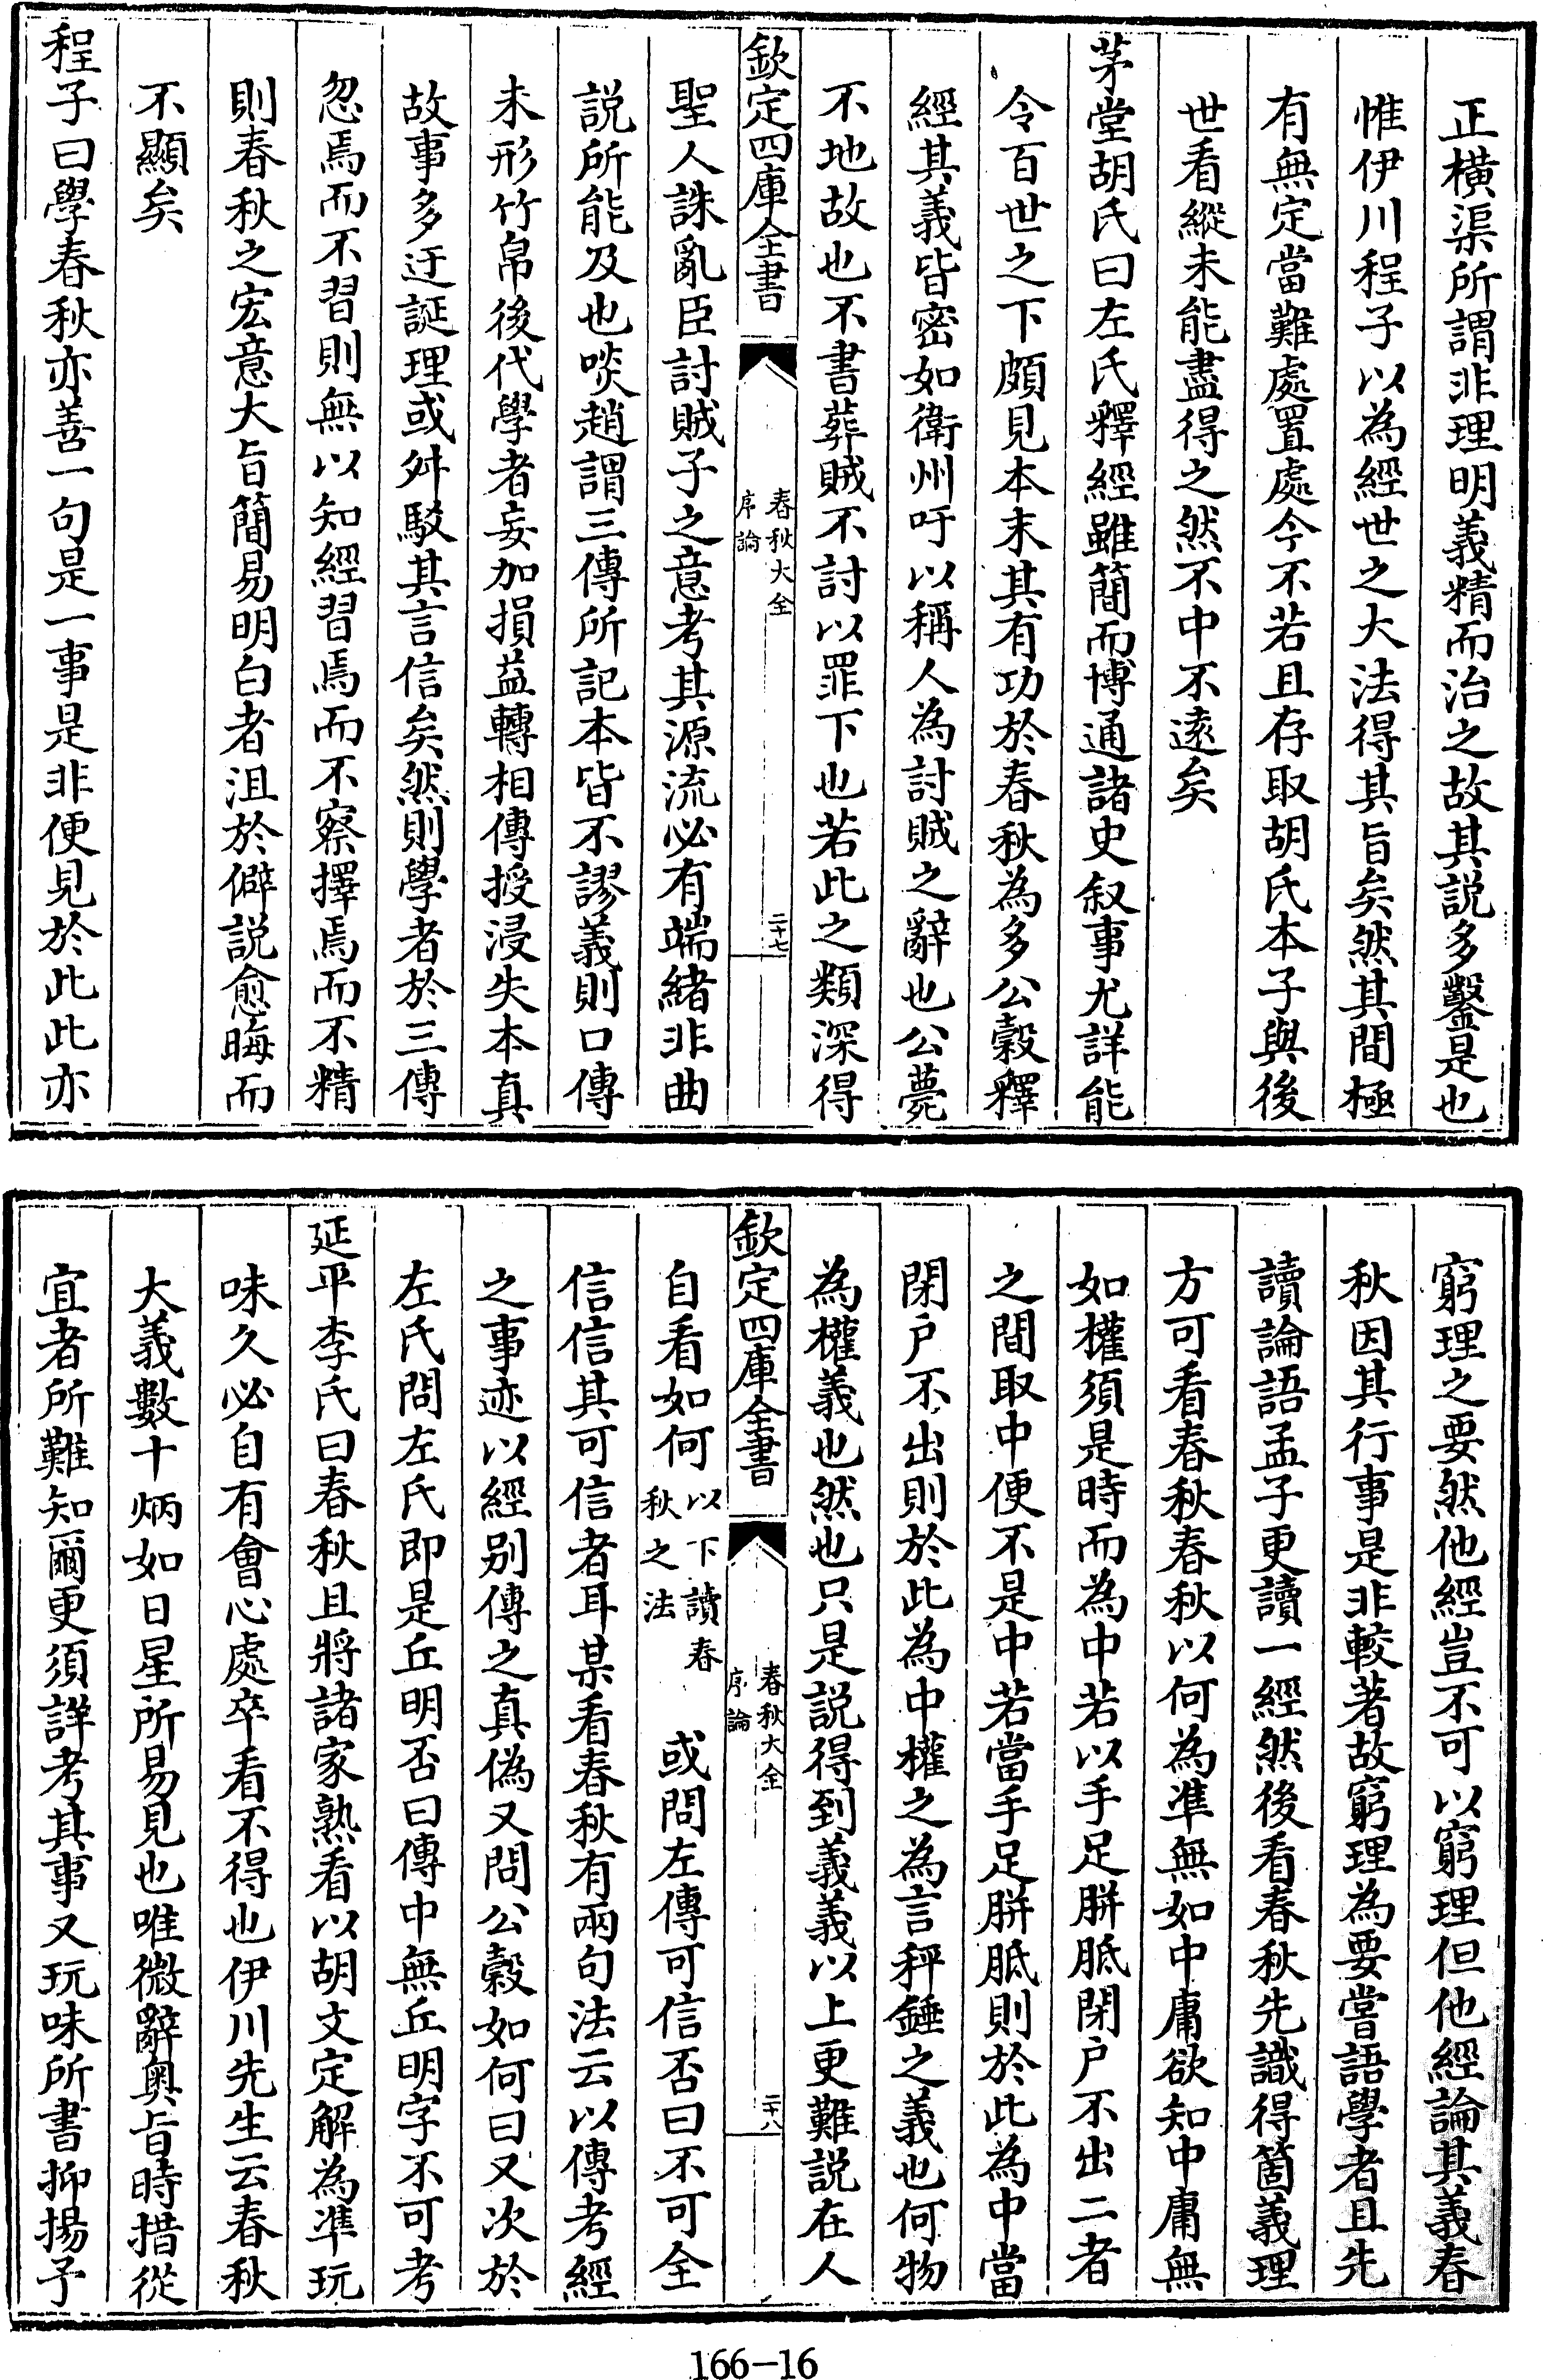 正橫渠所謂非理明義精而治之故其説多鑿是也
惟伊川程子以為經世之大法得其旨矣然其間極
有無定當難處置處今不若且存取胡氏本子與後
世看縱未能盡得之然不中不逺矣
茅堂胡氏曰左氏釋經雖簡而博通諸史叙事尤詳能
令百世之下頗見本末其有功於春秋為多公穀釋
經其義皆密如衛州吁以稱人為討賊之辭也公薨
不地故也不書葬賊不討以罪下也若此之類深得
欽定四庫全書
春秋大全
序論
二十七
聖人誅亂臣討賊子之意考其源流必有端緒非曲
説所能及也啖趙謂三傳所記本皆不謬義則口傳
未形竹帛後代學者妄加損益轉相傳授浸失本真
故事多迂誕理或舛駮其言信矣然則學者於三傳
忽焉而不習則無以知經習焉而不察擇焉而不精
則春秋之宏意大旨簡易明白者沮於僻説愈晦而
不顯矣
程子曰學春秋亦善一句是一事是非便見於此此亦
窮理之要然他經豈不可以窮理但他經論其義春
秋因其行事是非較著故窮理為要嘗語學者且先
讀論語孟子更讀一經然後看春秋先識得箇義理
方可看春秋春秋以何為凖無如中庸欲知中庸無
如權須是時而為中若以手足胼胝閉户不出二者
之間取中便不是中若當手足胼胝則於此為中當
閉户不出則於此為中權之為言秤錘之義也何物
為權義也然也只是説得到義義以上更難説在人
欽定四庫全書
春秋大全
序論
二十八
自看如何以下讀春秋之法　或問左傳可信否曰不可全
信信其可信者耳某看春秋有兩句法云以傳考經
之事迹以經别傳之真偽又問公穀如何曰又次於
左氏問左氏即是丘明否曰傳中無丘明字不可考
延平李氏曰春秋且將諸家熟看以胡文定解為凖玩
味久必自有會心處卒看不得也伊川先生云春秋
大義數十炳如日星所易見也唯微辭奥旨時措從
宜者所難知爾更須詳考其事又玩味所書抑揚予
166-16